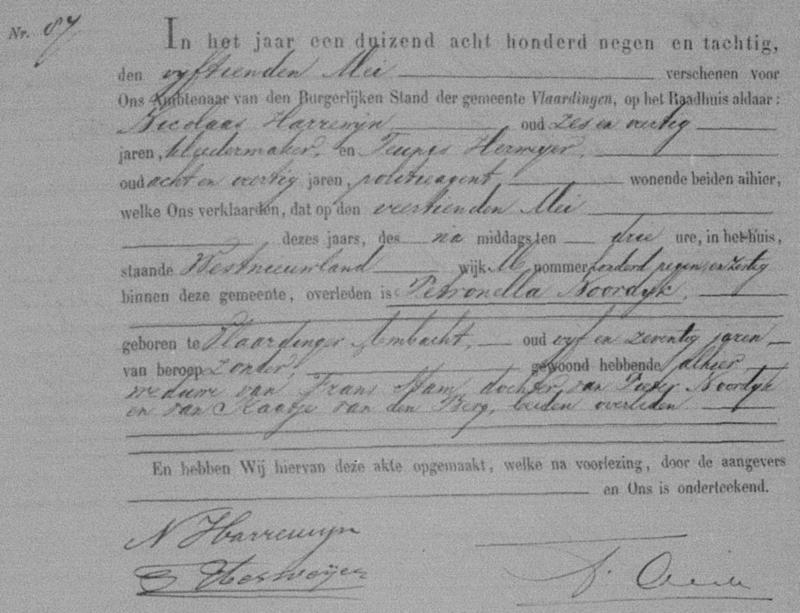 Nr. 87
In het jaar een duizend acht honderd negen en tachtig,
den vyftienden Mei verschenen voor
Ons Ambtenaar van den Burgerlijken Stand der gemeente Vlaardingen, op het Raadhuis aldaar:
Nicolaas Harrewijn oud zes en veertig
jaren, kleedermaker, en Teunes Herweyer,
oud acht en veertig jaren, politieagent, wonende beiden alhier,
welke Ons verklaarden, dat op den veertienden Mei
dezes jaars, des na middags ten drie ure, in het huis,
staande Westnieuwland wijk M nommer honderd negen en zestig
binnen deze gemeente, overleden is Petronella Noordyk,
geboren te Vlaardinger Ambacht, oud vyf en zeventig jaren
van beroep zonder, gewoond hebbende alhier
weduwe van Frans Stam, dochter van Pieter Noordyk
en van Kaatje van den Berg, beiden overleden
En hebben Wij hiervan deze akte opgemaakt, welke na voorlezing, door de aangevers
en Ons is onderteekend.
N Harrewijn
Herweijer